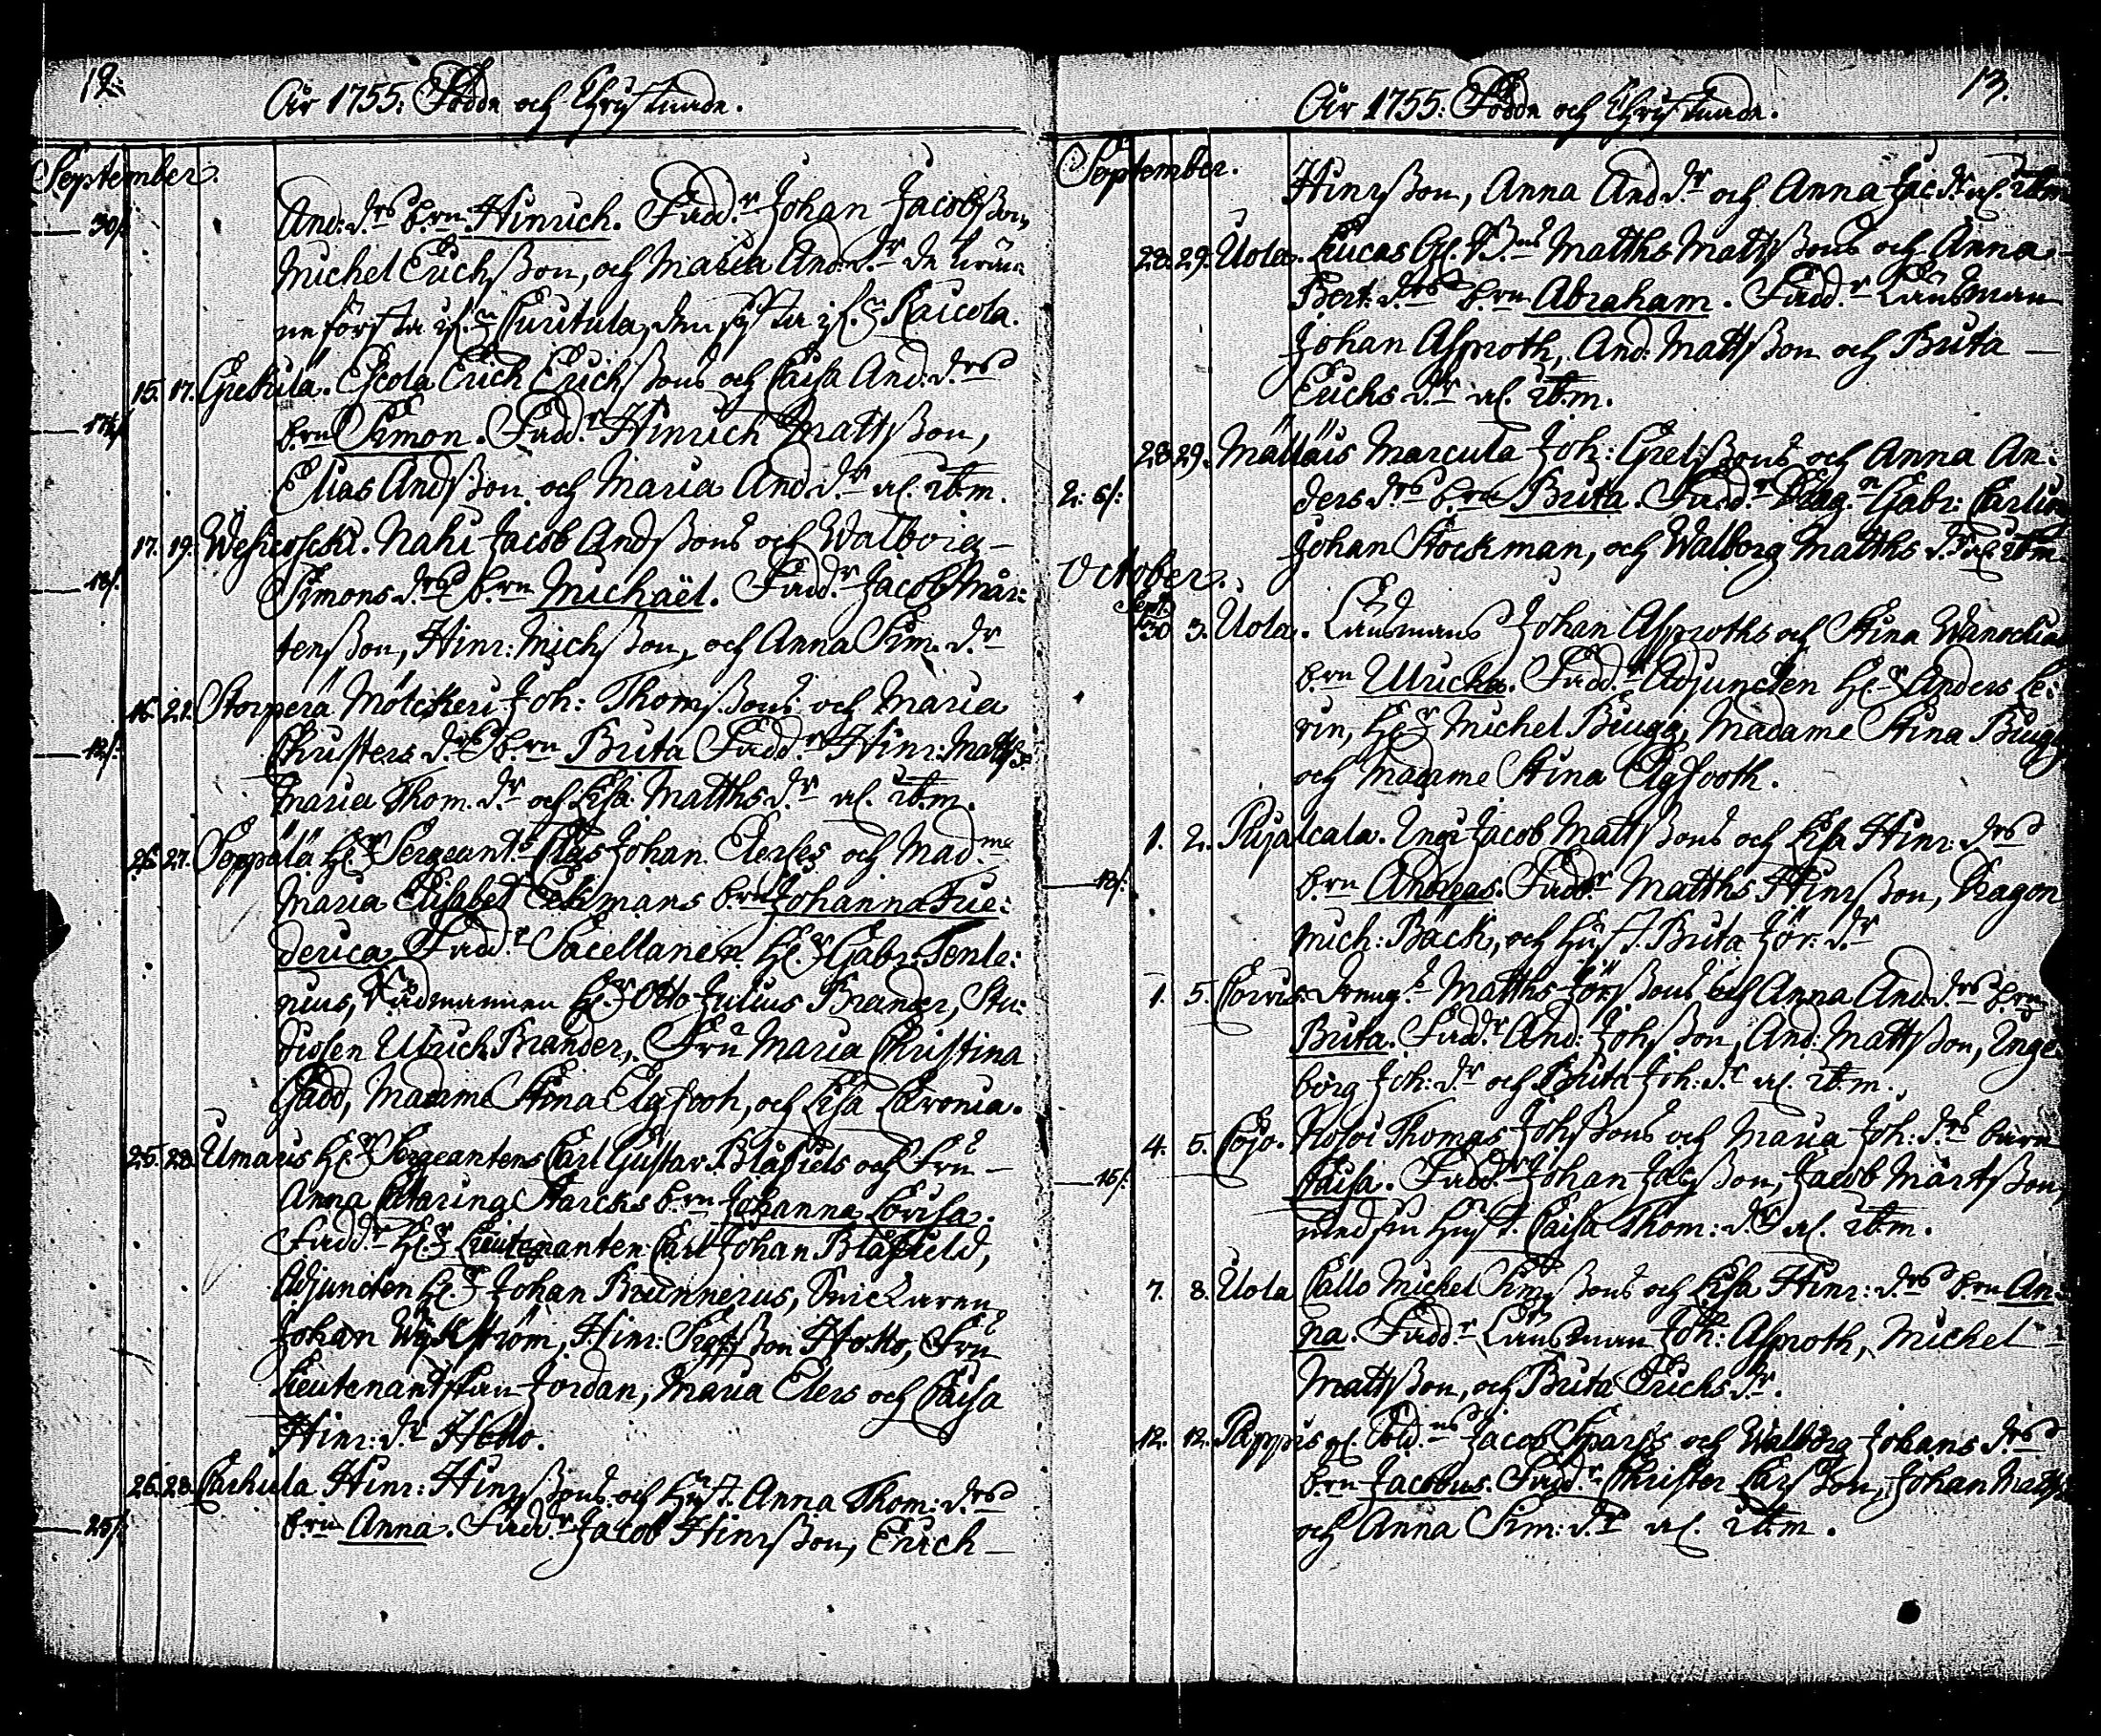 12.
Åir 1755: Födde och Chrystnade.
September.
30/. And: d:rs b:rn Hinrich. Fadd:r Johan Jacobsson,
Michel Erichsson, och Maria And: d:r de
ne första if:n Curitula, den sista if:n Raicola.
15. 17. Gretula. Escola Erich Erichssons och Caisa And: d:rs
17/. b:rn Simon. Fadd:r Hinrich Mattsson,
Elias Andsson och Maria And d:r al. ib.m.
17. 19. Nahi Jacob Andssons och Walborg
18/. Simons d:rs b:rn Michaël. Fadd:r Jacob Mår:
tensson, Hinr: Michsson, och Anna Sim. d:r
16. 21. Storperä Mölckeri Joh: Thomssons och Maria
12/. Christers d:rs b:rn Brita Fadd:r Hinr: Matts:
Maria Thom. d:r och Lisa Matths d:r al. ib.m.
26. 27. Seppälä H:r Sergeant:s Clas Johan Elerses och Mad:me
Maria Elisabet Eekmans b:rn Johanna Frie:
derica. Fadd:r Sacellanen H:r Gabr: Tenle:
nius, Rådmannen H:r Otto Julius Brander, Stu:
diosen Ulrich Brander, Fru Maria Christina
Gadd, Madame Stina Elgfooth, och Lisa Lavonia.
25. 28. Umaris H:r Sergeantens Carl Gustav Blåfields och Fru
Anna Catarina Starcks b:rn Johanna Lovisa.
Fadd:r H:r Lieutenanten Carl Johan Blåfield,
Adjuncten H:r Johan Brunnerus, Snickaren
Johan Wijkström, Hinr: Hotto, Fru
Lieutenantskan Jordan, Maria Elers och Caisa
Hinr: d:r Hotto.
26. 28. Carhula Hinr: Hinrssons och Hust. Anna Thom: d:rs
25/. b:rn Anna. Fadd:r Jacob Hinrsson, Erich
13.
Åir 1755: Födde och Chrystnade.
September.
Hinrsson, Anna And d:r och Anna Jac d:r al. ib.m
28. 29. Uola. Lucas Matths Mattssons och Anna
Bert: d:rs b:rn Abraham. Fadd:r Länsman
Johan Asproth, And: Mattsson och Brita
Erichs d:r al. ib.m.
28. 29. Mattäis Marcula Joh: Grelssons och Anna An:
2: 6/: ders d:rs b:rn Brita. Fadd:r Drag:n Gabr:
Johan Stockman, och Walborg Matths d:r al. ib.m
October.
Sept:
30 3. Uola. Länsmans Johan Asproths och Stina
b:rn Ulricka. Fadd:r Adjuncten H:r Anders Le:
rin, H:r Michel Biugg, Madame Stina Biugg
och Madame Stina Elgfooth.
1. 2. Pujalcala. Ingi Jacob Mattssons och Lisa Hinr: d:rs
13/: b:rn Andreas. Fadd:r Matths Hinrsson, Dragon
Mich: Bäck, och Hust. Brita Jör: d:r
1. 5. Corvis Dreng:s Matths Jörssons och Anna And: d:rs b:rn
Brita. Fadd:r And: Johsson, And: Mattsson, Inge:
borg Joh: d:r och Brita Joh: d:r al. ib.m.
4. 5. Cojo. Kosoi Thomas Johssons och Maria Joh: d:rs barn
15/: Caisa. Fadd:r Johan Jacsson, Jacob Mårtsson,
med sin Hust. Caisa Thom: d:r al. ib.m.
7. 8. Uola Callo Michel Simssons och Lisa Hinr: d:rs b:rn An:
na. Fadd:r Länsman Joh: Asproth, Michel
Mattsson, och Brita Erichs d:r.
12. 12. Pappis Sold:ns Jacob Sparfs och Walborg Johans d:rs
b:rn Jacobus. Fadd:r Christer Larsson, Johan Matts
och Anna Sim: d:r al. ib.m.